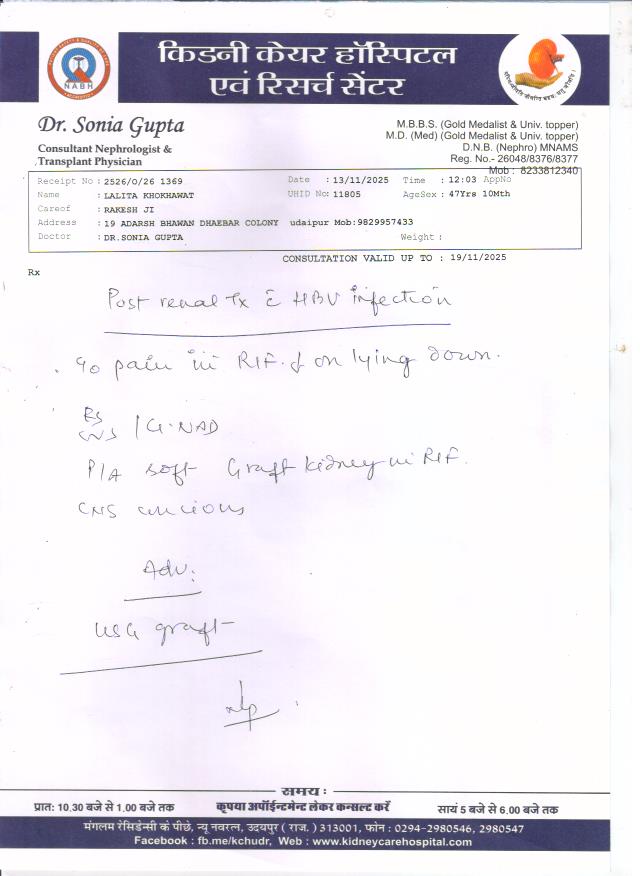 किडनी केयर हॉस्पिटल
एवं रिसर्च सेंटर
NABH
Dr. Sonia Gupta
Consultant Nephrologist &
Transplant Physician
M.B.B.S. (Gold Medalist & Univ. topper)
M.D. (Med) (Gold Medalist & Univ. topper)
D.N.B. (Nephro) MNAMS
Reg. No.- 26048/8376/8377
Mob : 8233812340
Receipt No : 2526/O/26 1369 Date : 13/11/2025 Time : 12:03 AppNo
Name : LALITA KHOKHAWAT UHID No: 11805 AgeSex : 47Yrs 10Mth
Careof : RAKESH JI
Address : 19 ADARSH BHAWAN DHAEBAR COLONY udaipur Mob:9829957433
Doctor : DR.SONIA GUPTA Weight :
CONSULTATION VALID UP TO : 19/11/2025
Rx
Post renal Tx c̄ HBV infection
c/o pain in RIF. on lying down.
RS
CVS NAD
P/A soft Graft kidney in RIF.
CNS
Adv:
USG graft
समय :
प्रात: 10.30 बजे से 1.00 बजे तक कृपया अपॉईन्टमेन्ट लेकर कन्सल्ट करें सायं 5 बजे से 6.00 बजे तक
मंगलम रेसिडेन्सी के पीछे, न्यू नवरत्न, उदयपुर ( राज. ) 313001, फोन : 0294-2980546, 2980547
Facebook : fb.me/kchudr, Web : www.kidneycarehospital.com